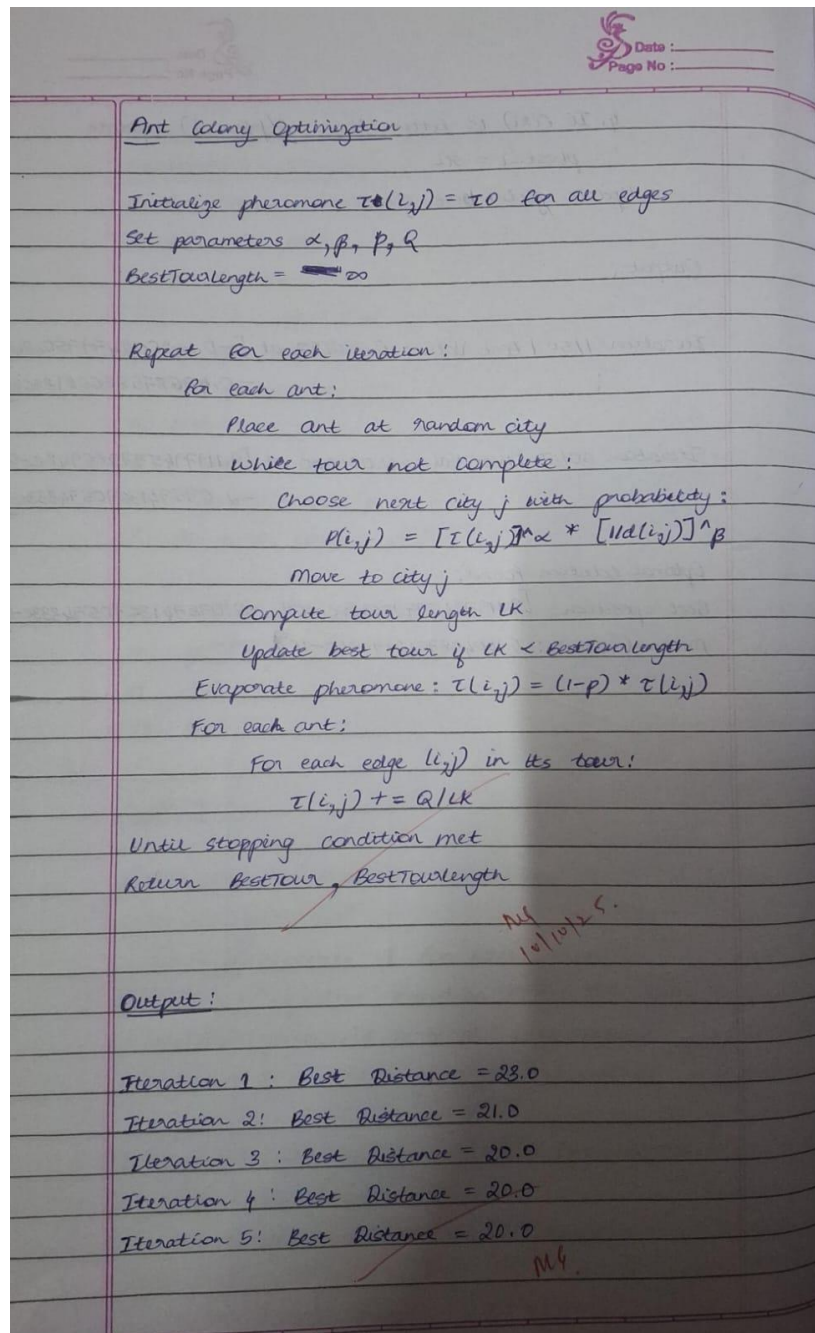 Date :
Page No :
Ant Colony Optimization
Initialize pheromone τ(i,j) = τ0 for all edges
Set parameters α, β, ρ, Q
BestTourLength = ∞
Repeat for each iteration:
for each ant:
Place ant at random city
While tour not complete:
Choose next city j with probability:
P(i,j) = [τ(i,j)]^α * [1/d(i,j)]^β
Move to city j
Compute tour length LK
Update best tour if LK < BestTourLength
Evaporate pheromone: τ(i,j) = (1-ρ) * τ(i,j)
For each ant:
For each edge (i,j) in its tour:
τ(i,j) += Q/LK
Until stopping condition met
Return BestTour, BestTourLength
10/10/25.
Output:
Iteration 1 : Best Distance = 23.0
Iteration 2: Best Distance = 21.0
Iteration 3 : Best Distance = 20.0
Iteration 4 : Best Distance = 20.0
Iteration 5: Best Distance = 20.0